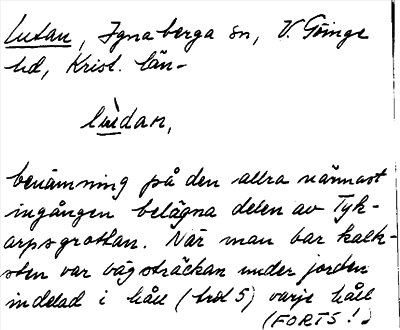 Lutan, Ignaberga sn, V. Göinge
hd, Krist. län.
benämning på den allra närmast
ingången belägna delen av Tyk-
arpsgrottan. När man bar kalk-
sten var vägsträckan under jorden
indelad i håll (tal 5) varje håll
(FORTS!)